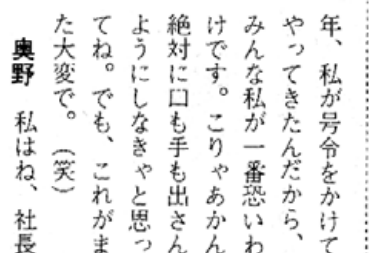 年、私が号令をかけて
やってきたんだから、
みんな私が一番恐いわ
けです。こりゃあかん
絶対に口も手も出さん
ようにしなきゃと思っ
てね。でも、これがま
た大変で。（笑）
奥野　私はね、社長